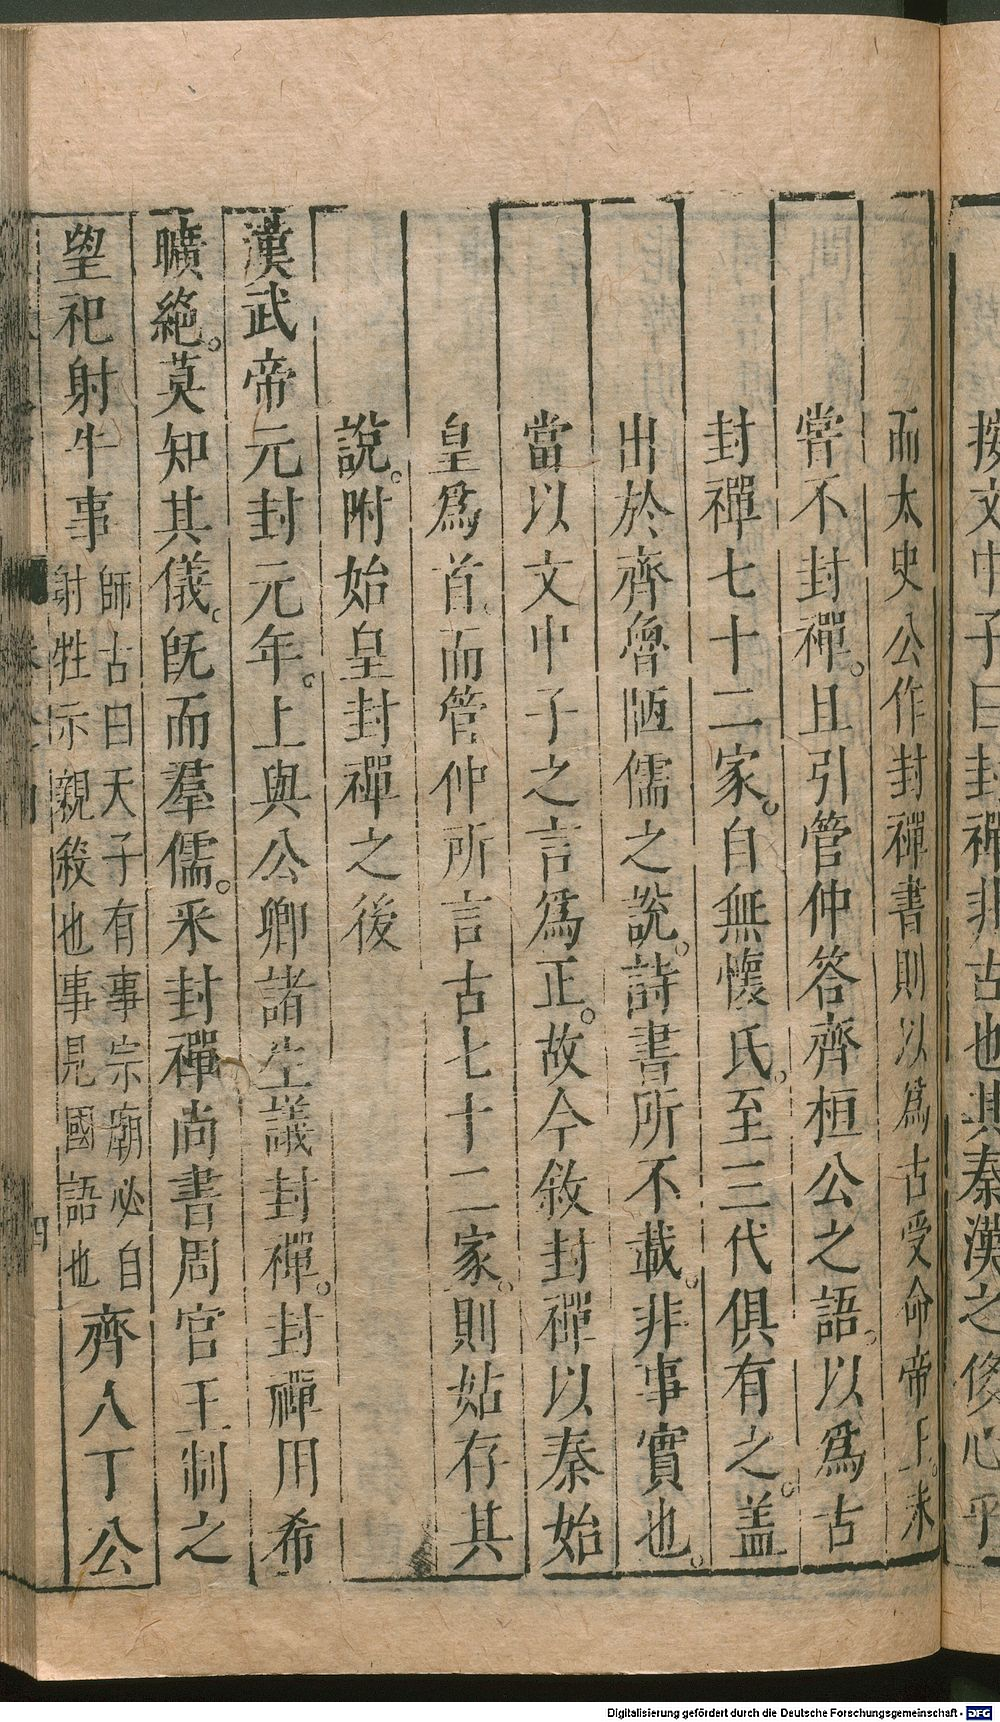 按文中子曰封禪非古也其秦漢之侈心乎
而太史公作封禪書則以爲古受命帝王未
嘗不封禪。且引管仲答齊桓公之語。以爲古
封禪七十二家。自無懷氏。至三代俱有之。盖
出於齊魯陋儒之說。詩書所不載。非事實也。
當以文中子之言爲正。故今敘封禪以秦始
皇爲首。而管仲所言古七十二家。則姑存其
說。附始皇封禪之後
漢武帝元封元年。上與公卿諸生議封禪。封禪用希
曠絶。莫知其儀。旣而羣儒。采封禪尚書周官王制之
望祀射牛事師古曰天子有事宗廟必自射牲示親殺也事見國語也齊人丁公
四
Digitalisierung gefördert durch die Deutsche Forschungsgemeinschaft - DFG